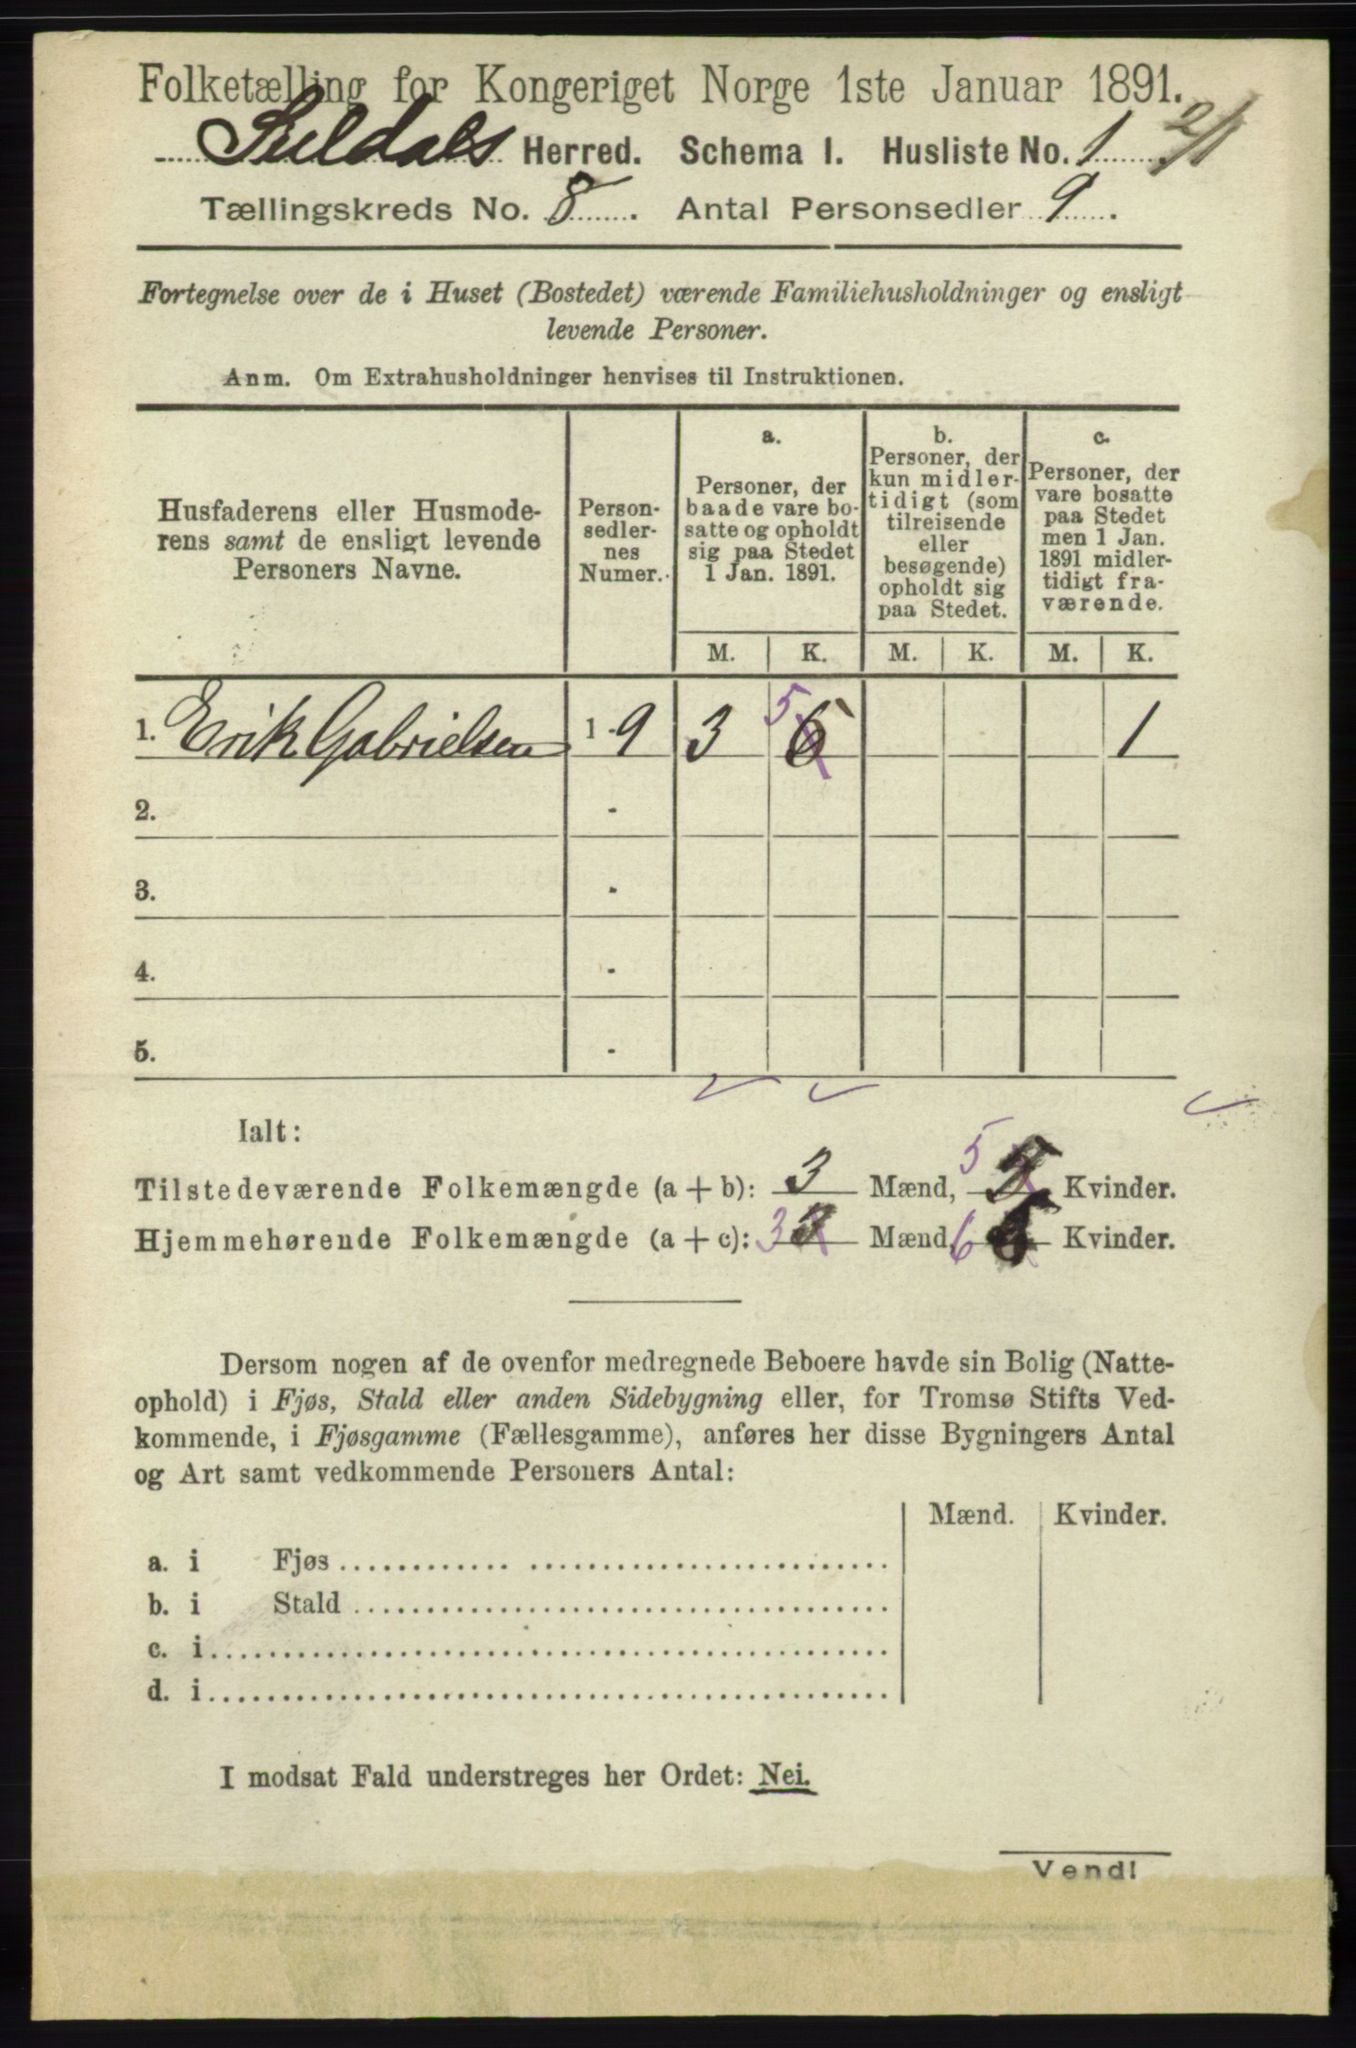 Folketælling for Kongeriget Norge 1ste Januar 1891.
Suldals Herred. Schema I. Husliste No. 1 2/1
Tællingskreds No. 8. Antal Personsedler 9.
Fortegnelse over de i Huset (Bostedet) værende Familiehusholdninger og ensligt
levende Personer.
Anm. Om Extrahusholdninger henvises til Instruktionen.
Husfaderens eller Husmode-
rens samt de ensligt levende
Personers Navne.
Person-
sedler-
nes
Numer.
a.
Personer, der
baade vare bo-
satte og opholdt
sig paa Stedet
1 Jan. 1891.
b.
Personer, der
kun midler-
tidigt (som
tilreisende
eller
besøgende)
opholdt sig
paa Stedet.
c.
Personer, der
vare bosatte
paa Stedet
men 1 Jan.
1891 midler-
tidigt fra-
værende.
M. K. M. K. M. K.
1. Erik Gabrielsen 1-9 3 5 6 1
2. -
3. -
4. -
5. -
Ialt:
Tilstedeværende Folkemængde (a + b): 3 Mænd, 5 Kvinder.
Hjemmehørende Folkemængde (a + c): 3 3 Mænd, 6 Kvinder.
Dersom nogen af de ovenfor medregnede Beboere havde sin Bolig (Natte-
ophold) i Fjøs, Stald eller anden Sidebygning eller, for Tromsø Stifts Ved-
kommende, i Fjøsgamme (Fællesgamme), anføres her disse Bygningers Antal
og Art samt vedkommende Personers Antal:
Mænd. Kvinder.
a. i Fjøs
b. i Stald
c. i
d. i
I modsat Fald understreges her Ordet: Nei.
Vend!